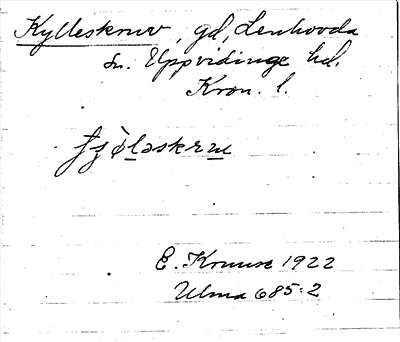 Kylleskruv, gd, Lenhovda
sn. Uppvidinge hd.
Kron. l.
E. Kruuse 1922
Ulma 685:2